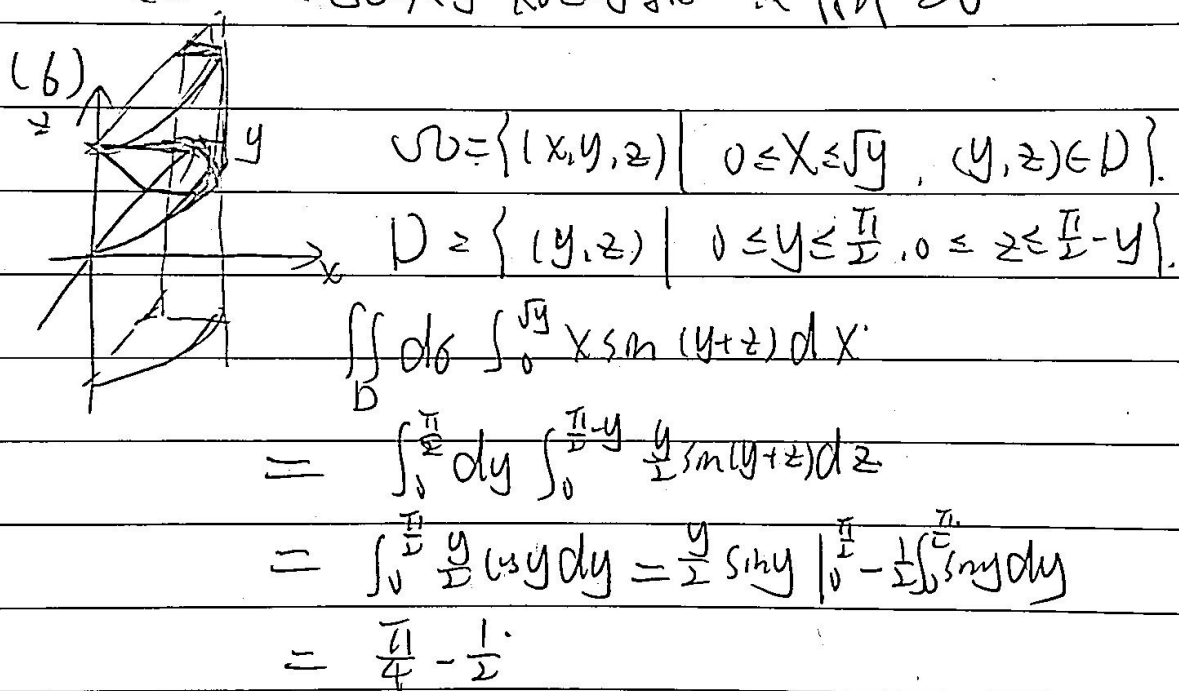 (6)
z
y
x
Ω={(x,y,z)| 0≤x≤√y, (y,z)∈D}.
D = {(y,z)| 0≤y≤π/2, 0≤z≤π/2-y}.
∬_D dσ ∫_0^{√y} x sin(y+z)dx
= ∫_0^{π/2} dy ∫_0^{π/2-y} y/2 sin(y+z)dz
= ∫_0^{π/2} y/2 cosy dy = y/2 siny |_0^{π/2} - 1/2∫_0^{π/2} siny dy
= π/4 - 1/2.